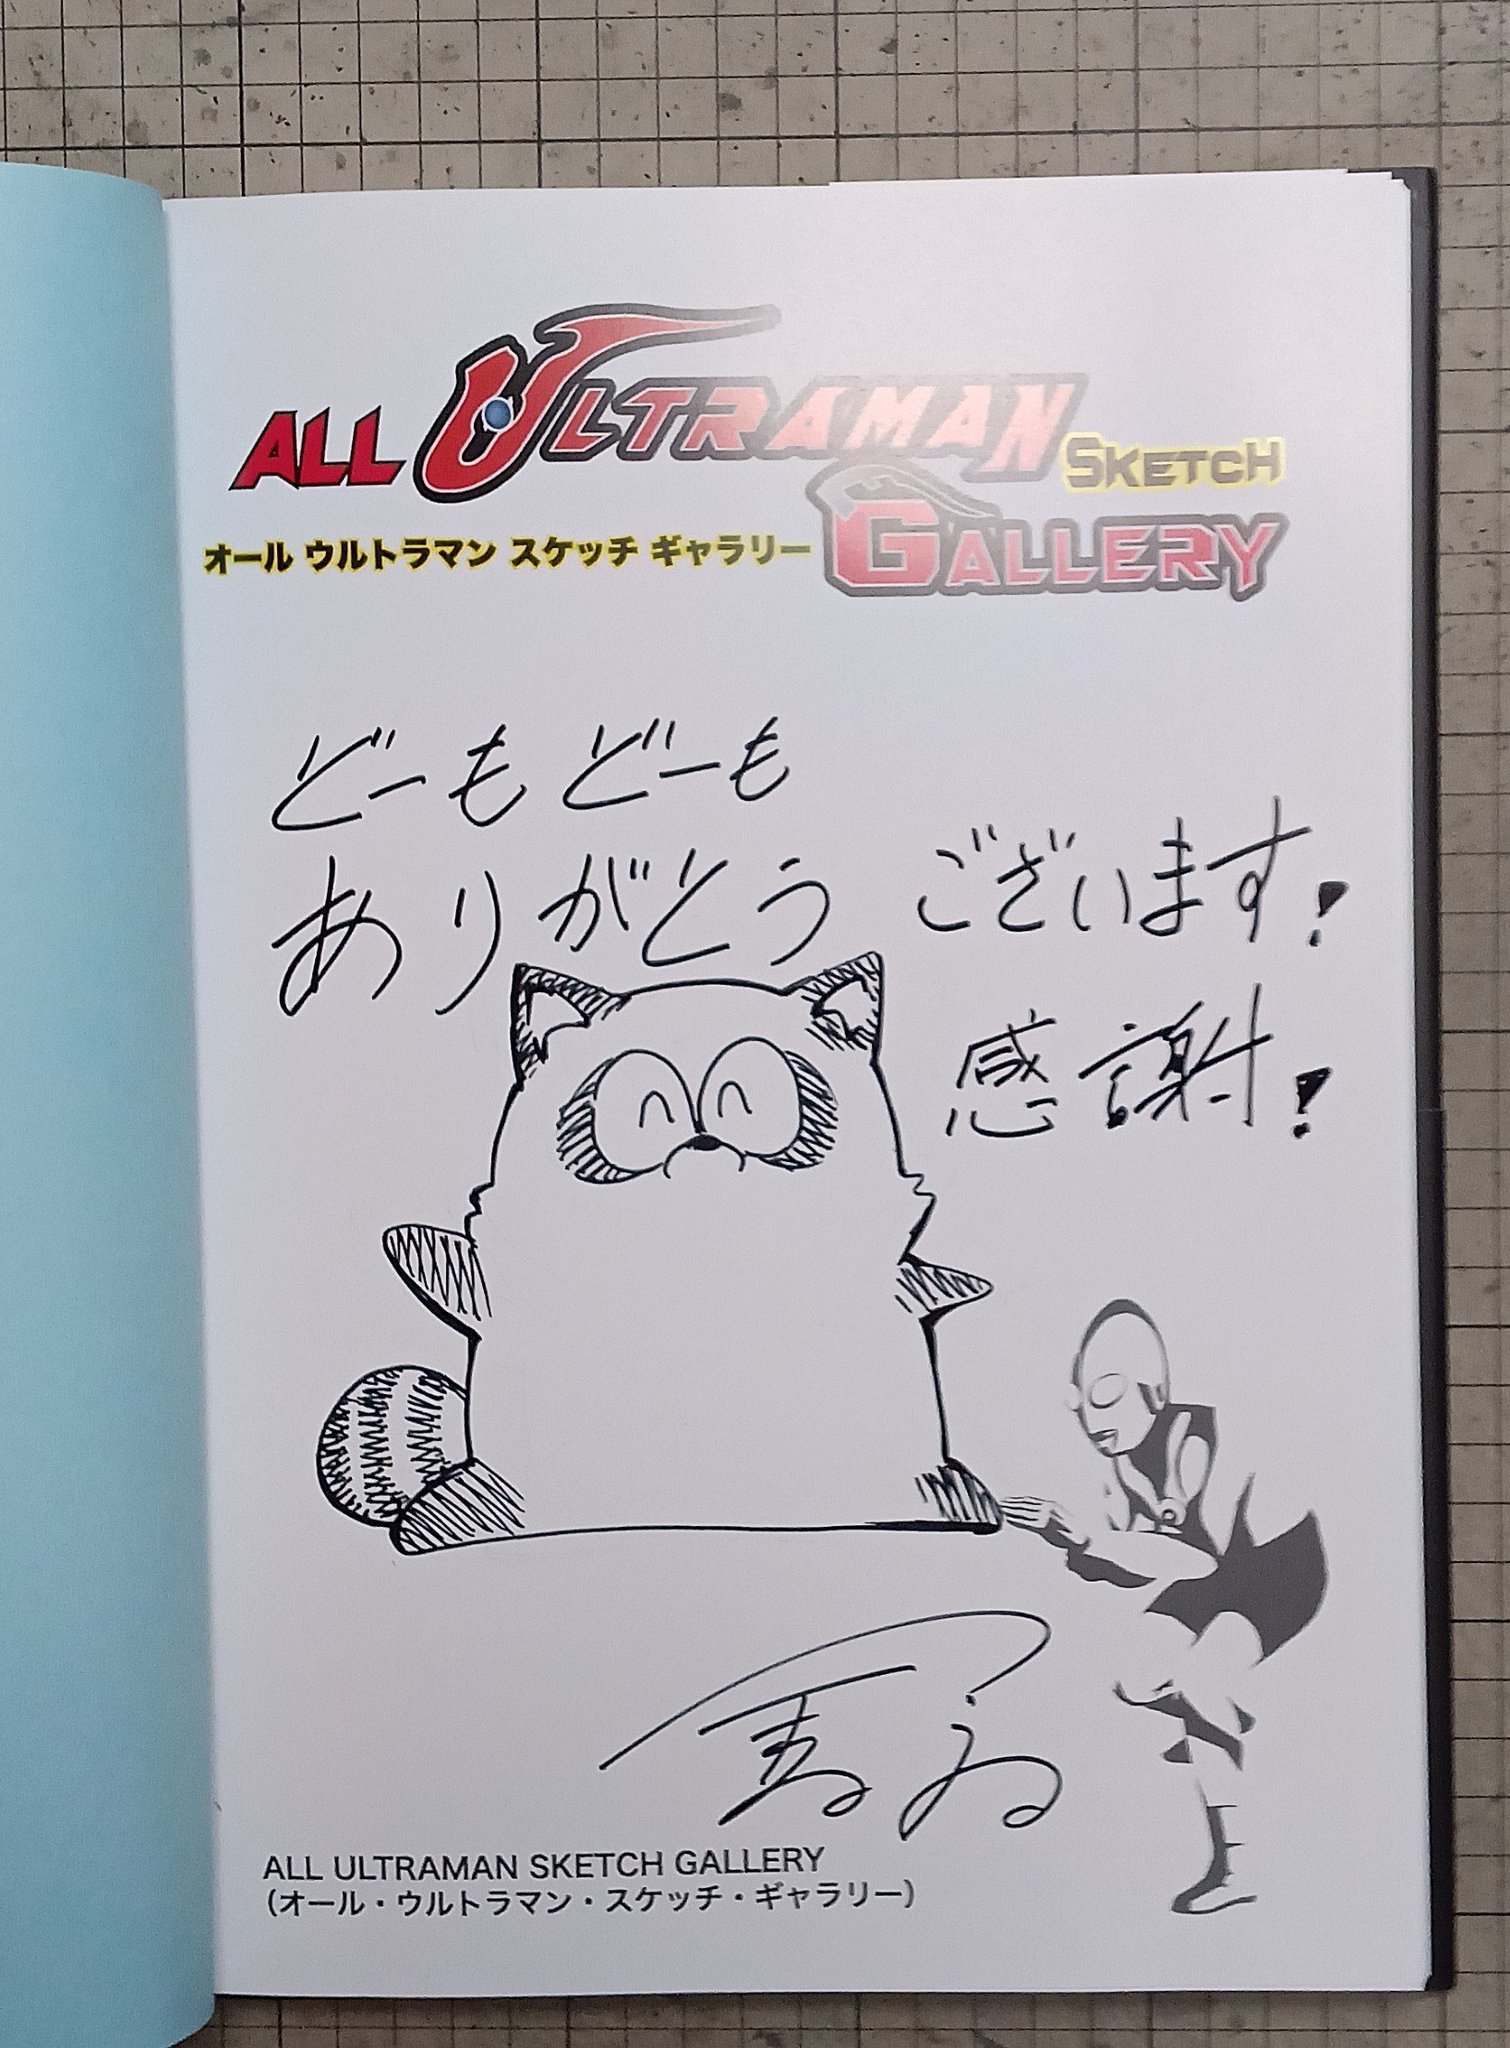 ALL ULTRAMAN SKETCH GALLERY
オール ウルトラマン スケッチ ギャラリー
どーもどーも
ありがとうございます!
感謝!
ALL ULTRAMAN SKETCH GALLERY
(オール・ウルトラマン・スケッチ・ギャラリー)